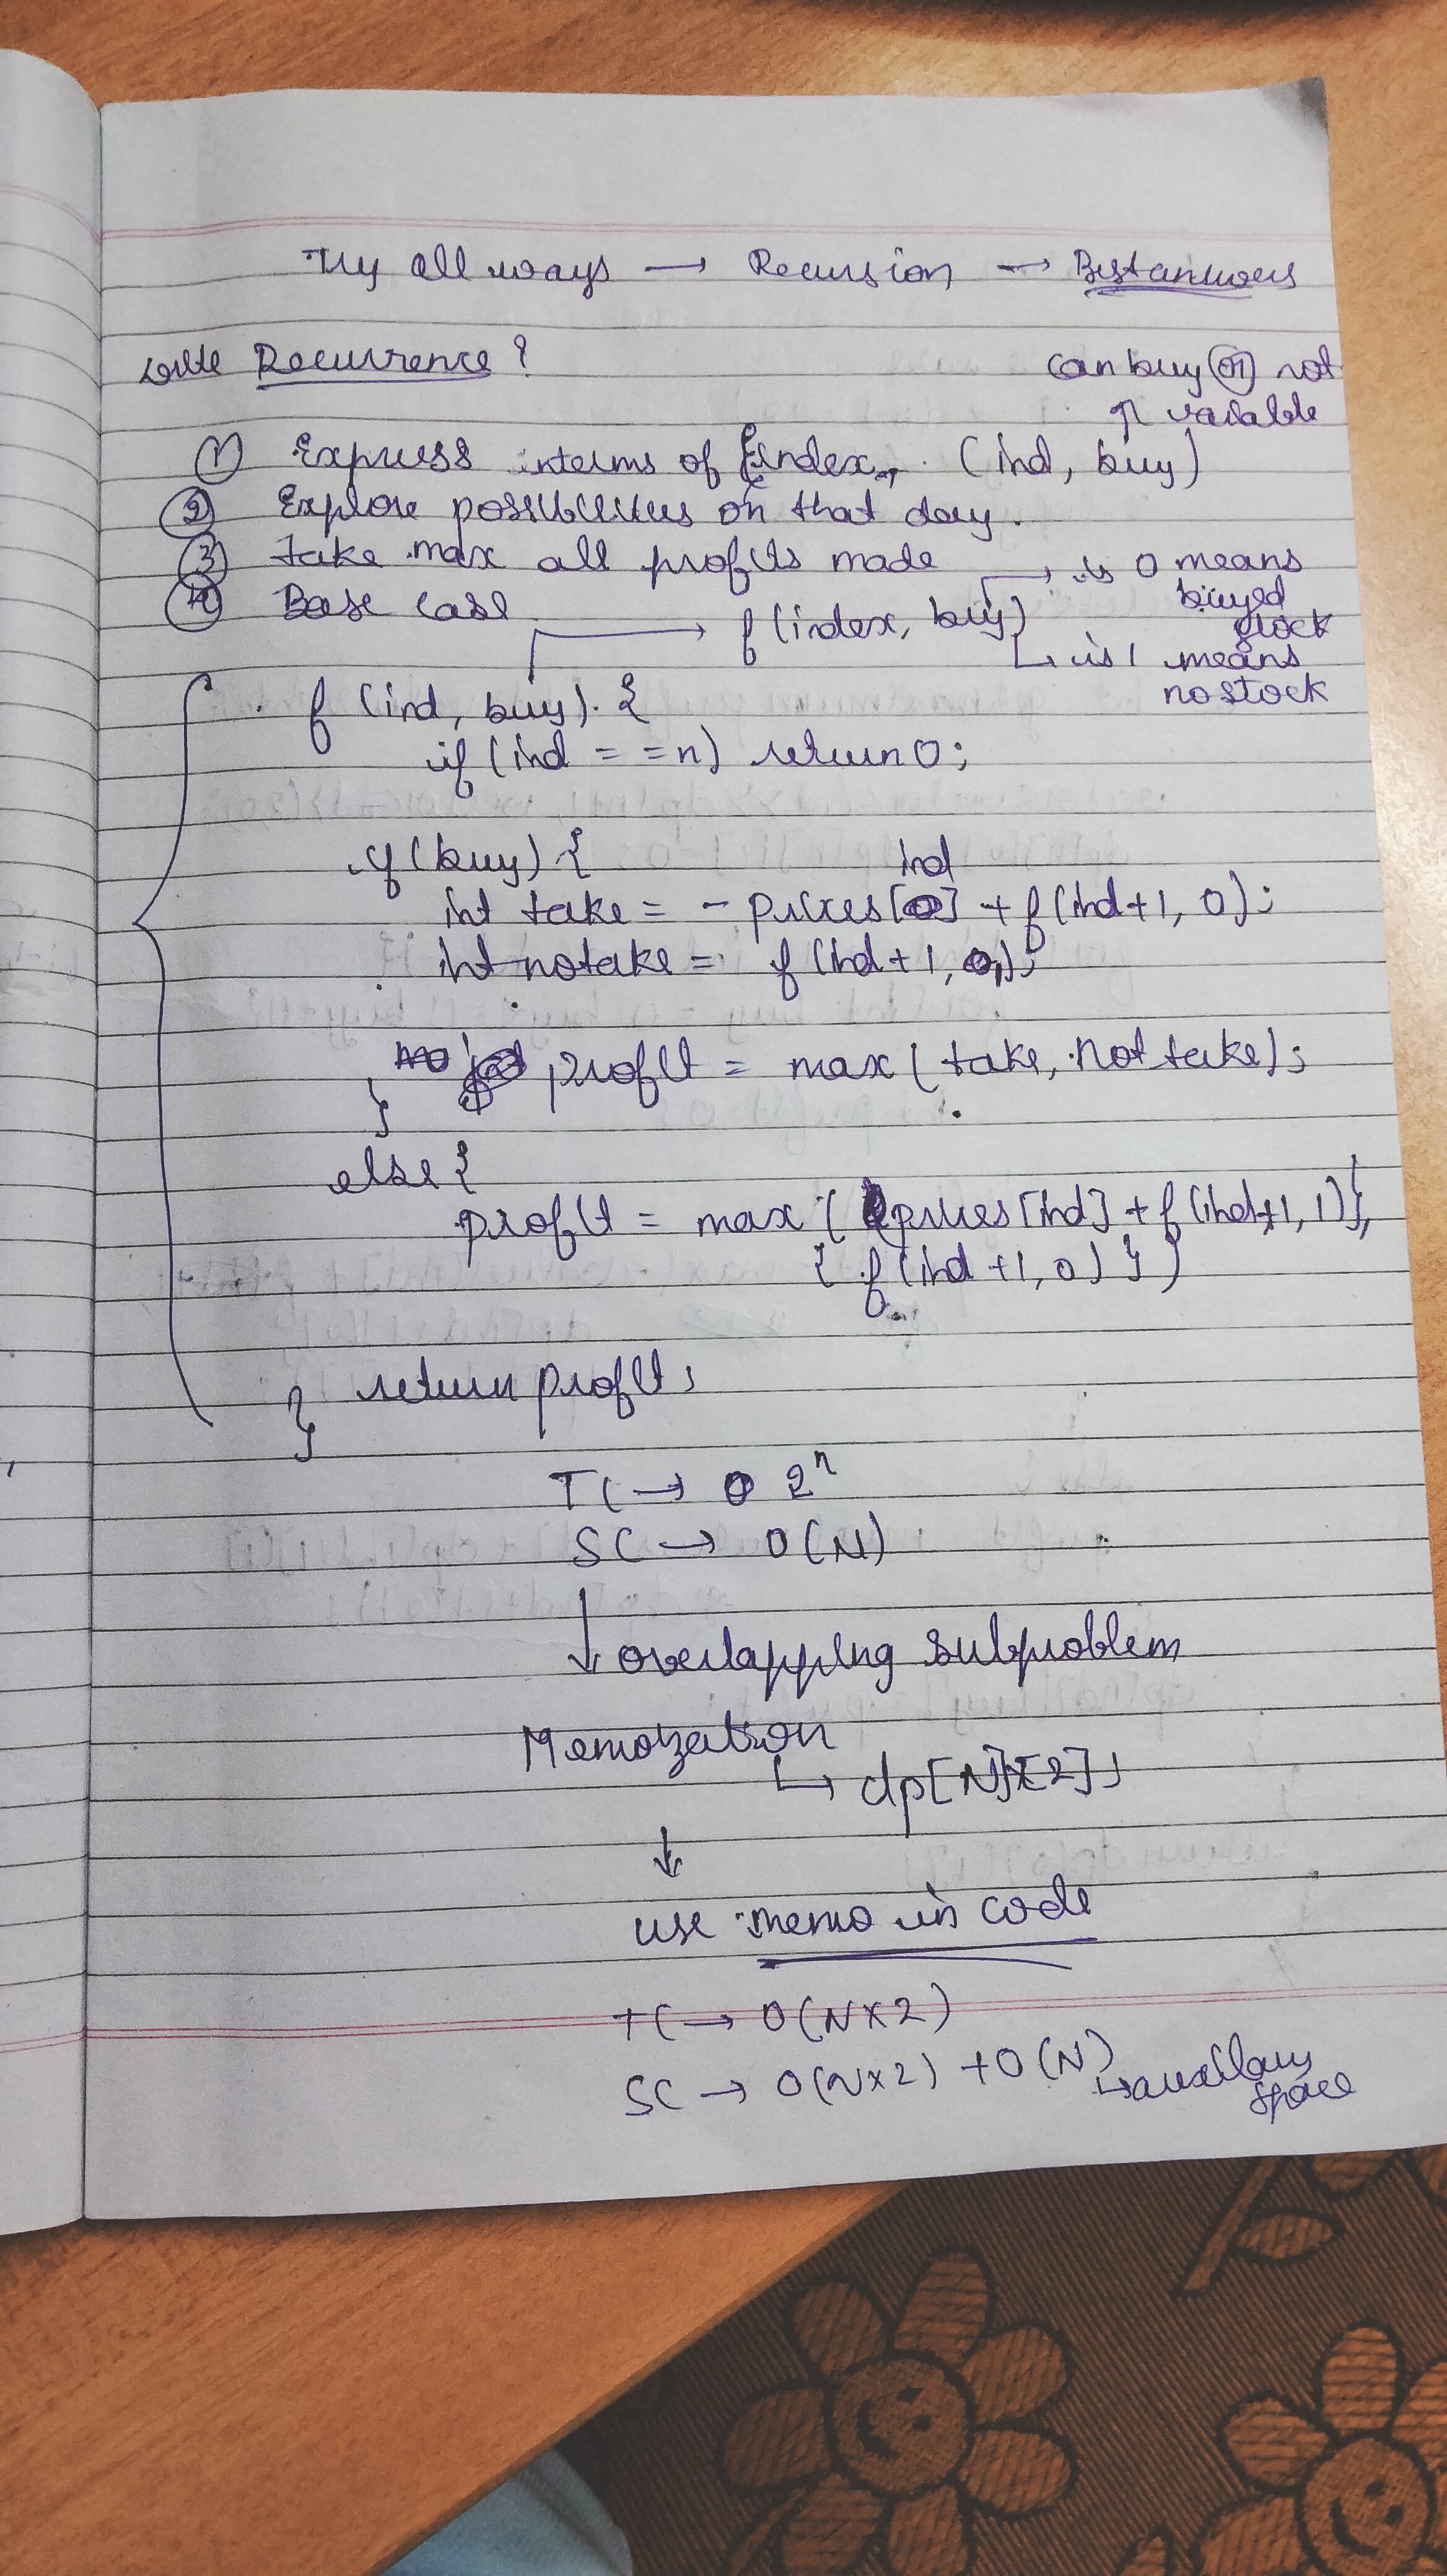 Try all ways → Recursion → Best answers
write Recurrence?
can buy or not
↑ variable
① Express interms of index, (ind, buy)
② Explore possibilities on that day.
③ take max all profits made
④ Base case
f(index, buy)
→ is 0 means
buyed
stock
↳ is 1 means
no stock
f (ind, buy) {
if (ind = = n) return 0;
if (buy) {
ind
int take = - prices[ ] + f(ind+1, 0);
int notake = f(ind+1, 1);
profit = max( take, not take);
}
else {
profit = max { prices[ind] + f(ind+1, 1)},
{ f(ind+1, 0) } )
return profit;
}
TC → 2ⁿ
SC → O(N)
↓ overlapping subproblem
Memozation
↳ dp[N][2];
↓
use memo in code
TC → O(N×2)
SC → O(N×2) + O(N)
↳ auxilary
space